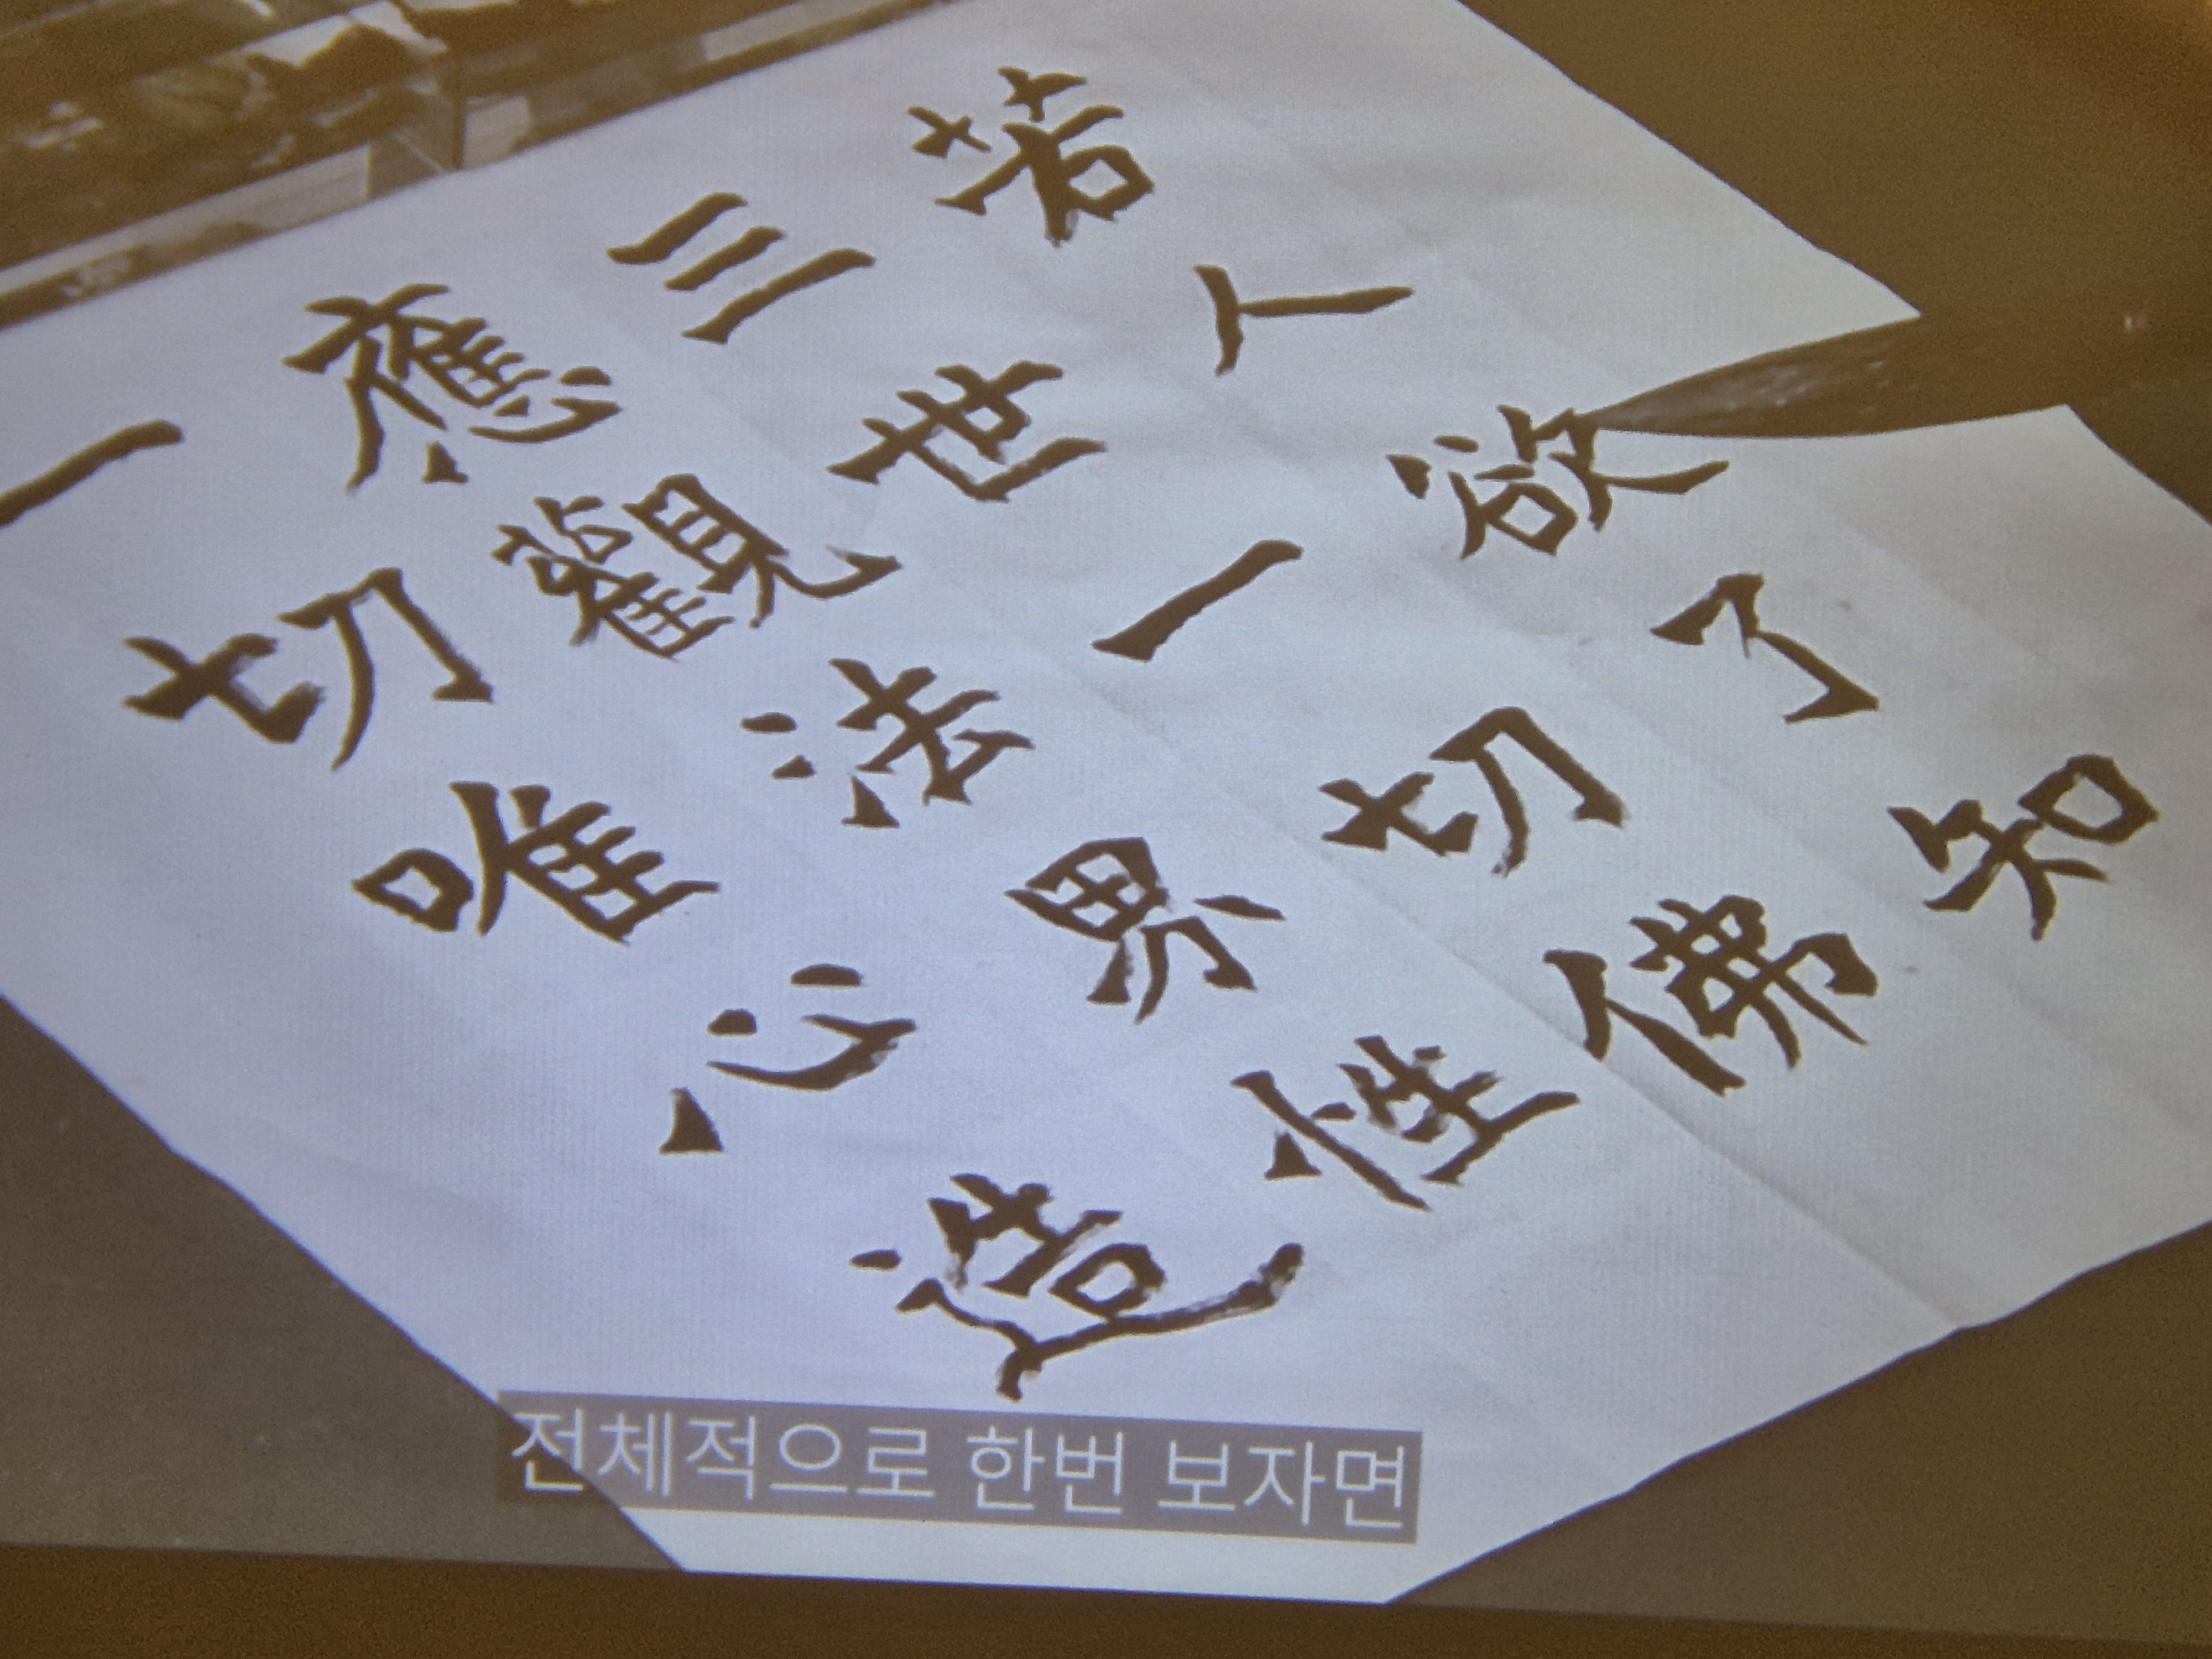 若人欲了知
三世一切佛
應觀法界性
一切唯心造
전체적으로 한번 보자면